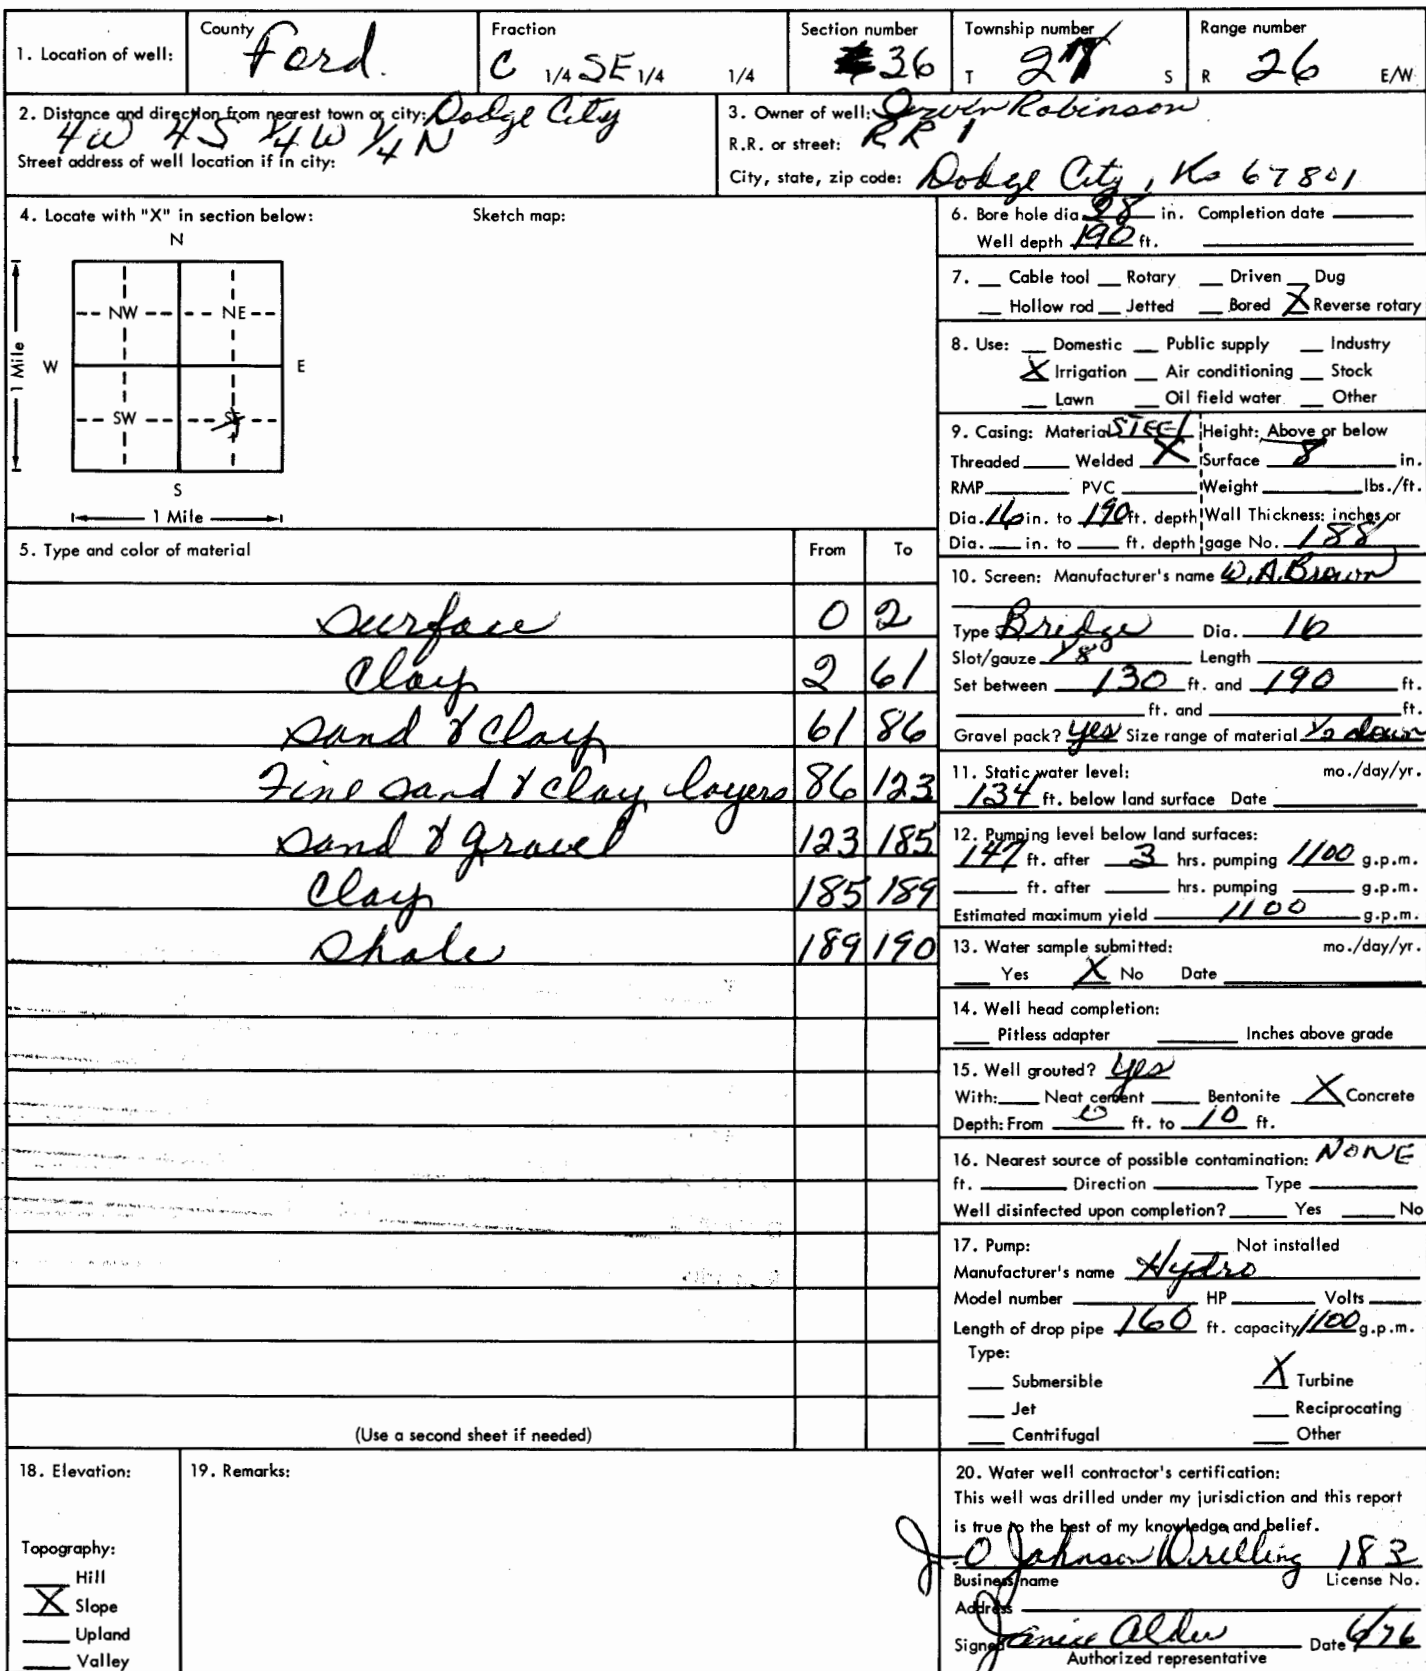 1. Location of well: County Ford. Fraction C 1/4 SE 1/4 1/4 Section number 36 Township number T 27 S Range number R 26 E/W
2. Distance and direction from nearest town or city: Dodge City
4W 4S 1/4 W 1/4 N
Street address of well location if in city:
3. Owner of well: Robinson
R.R. or street: RR 1
City, state, zip code: Dodge City, Ks 67801
4. Locate with "X" in section below: Sketch map:
N
NW NE
W E
1 Mile
SW SE
S
1 Mile
6. Bore hole dia. 28 in. Completion date
Well depth 190 ft.
7. Cable tool Rotary Driven Dug
Hollow rod Jetted Bored X Reverse rotary
8. Use: Domestic Public supply Industry
X Irrigation Air conditioning Stock
Lawn Oil field water Other
9. Casing: Material STEEL Height: Above or below
Threaded Welded X Surface 8 in.
RMP PVC Weight lbs./ft.
Dia. 16 in. to 190 ft. depth Wall Thickness: inches or
Dia. in. to ft. depth gage No. 188
5. Type and color of material From To
Surface 0 2
Clay 2 61
Sand & Clay 61 86
Fine sand & clay layers 86 123
Sand & Gravel 123 185
Clay 185 189
Shale 189 190
(Use a second sheet if needed)
10. Screen: Manufacturer's name W.A. Brown
Type Bridge Dia. 16
Slot/gauze 1/8" Length
Set between 130 ft. and 190 ft.
ft. and ft.
Gravel pack? yes Size range of material 1/2 down
11. Static water level: mo./day/yr.
134 ft. below land surface Date
12. Pumping level below land surfaces:
147 ft. after 3 hrs. pumping 1100 g.p.m.
ft. after hrs. pumping g.p.m.
Estimated maximum yield 1100 g.p.m.
13. Water sample submitted: mo./day/yr.
Yes X No Date
14. Well head completion:
Pitless adapter Inches above grade
15. Well grouted? yes
With: Neat cement Bentonite X Concrete
Depth: From 0 ft. to 10 ft.
16. Nearest source of possible contamination: NONE
ft. Direction Type
Well disinfected upon completion? Yes No
17. Pump: Not installed
Manufacturer's name Hydro
Model number HP Volts
Length of drop pipe 160 ft. capacity 1100 g.p.m.
Type:
Submersible X Turbine
Jet Reciprocating
Centrifugal Other
18. Elevation:
Topography:
Hill
X Slope
Upland
Valley
19. Remarks:
20. Water well contractor's certification:
This well was drilled under my jurisdiction and this report
is true to the best of my knowledge and belief.
J-O Johnson Drilling 183
Business name License No.
Address
Signed Janice Alder Date 6/76
Authorized representative